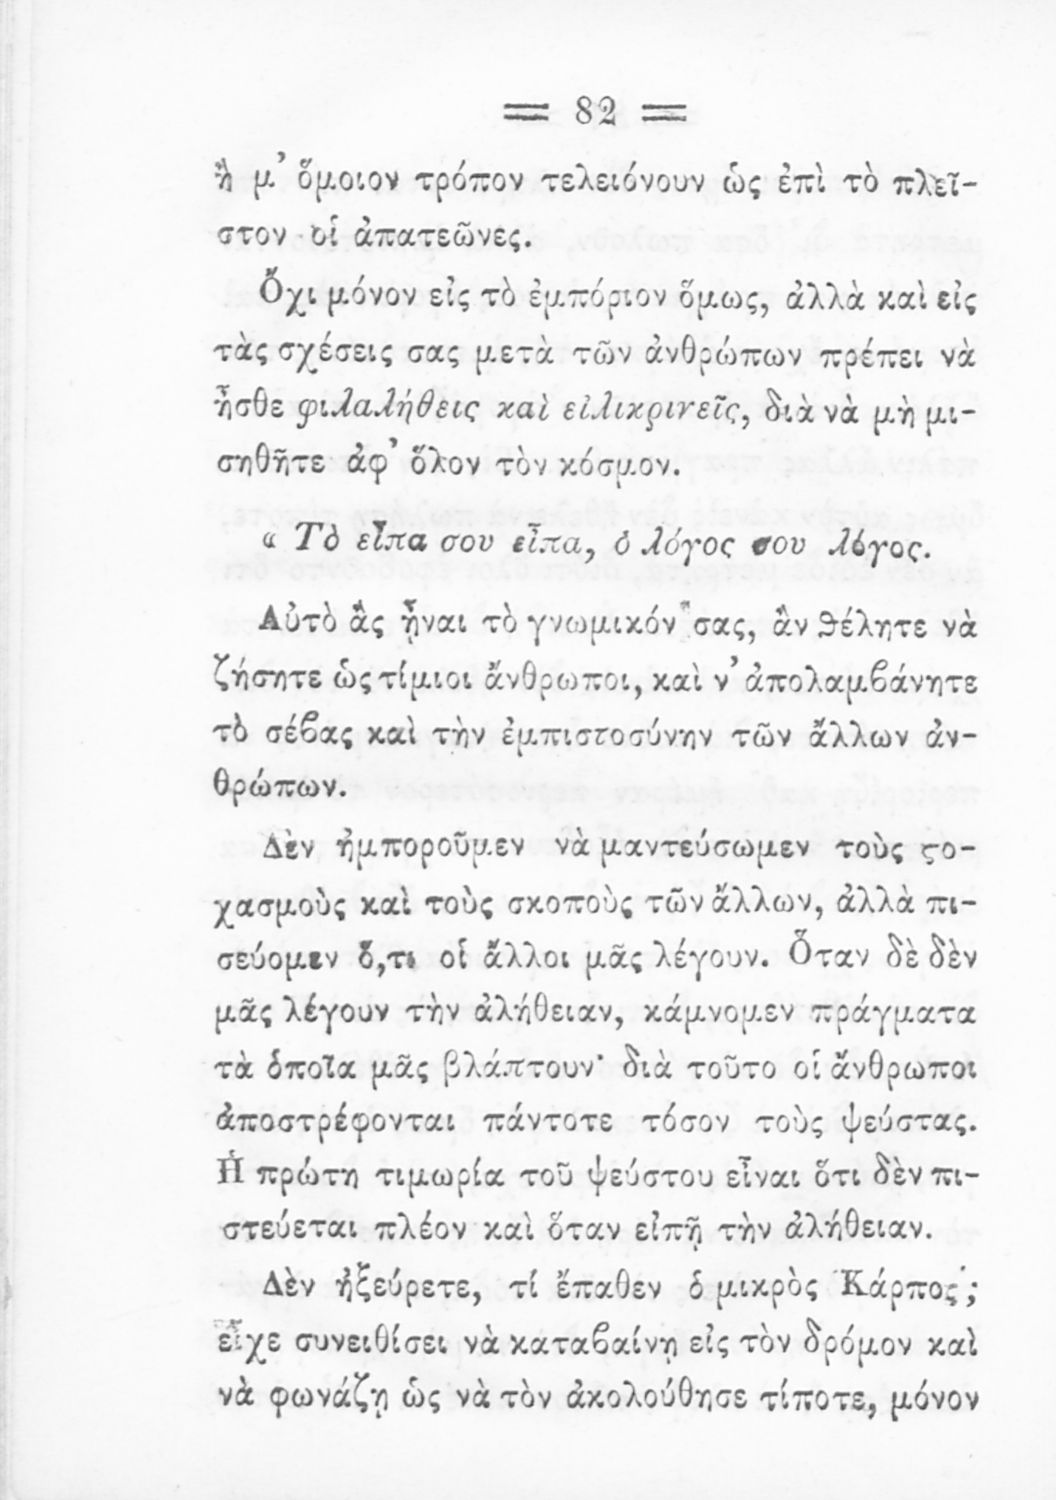 = 82 =
ἢ μ' ὅμοιον τρόπον τελειόνουν ὡς ἐπὶ τὸ πλεῖ-
στον οἱ ἀπατεῶνες.
Ὄχι μόνον εἰς τὸ ἐμπόριον ὅμως, ἀλλὰ καὶ εἰς
τὰς σχέσεις σας μετὰ τῶν ἀνθρώπων πρέπει νὰ
ἦσθε φιλαλήθεις καὶ εἰλικρινεῖς, διὰ νὰ μὴ μι-
σηθῆτε ἀφ' ὅλον τὸν κόσμον.
« Τὸ εἶπα σου εἶπα, ὁ λόγος σου λόγος.
Αὐτὸ ἂς ᾖναι τὸ γνωμικόν σας, ἂν θέλητε νὰ
ζήσητε ὡς τίμιοι ἄνθρωποι, καὶ ν' ἀπολαμβάνητε
τὸ σέβας καὶ τὴν ἐμπιστοσύνην τῶν ἄλλων ἀν-
θρώπων.
Δὲν ἠμποροῦμεν νὰ μαντεύσωμεν τοὺς ϛο-
χασμοὺς καὶ τοὺς σκοποὺς τῶν ἄλλων, ἀλλὰ πι-
σεύομεν ὅ,τι οἱ ἄλλοι μᾶς λέγουν. Ὅταν δὲ δὲν
μᾶς λέγουν τὴν ἀλήθειαν, κάμνομεν πράγματα
τὰ ὁποῖα μᾶς βλάπτουν· διὰ τοῦτο οἱ ἄνθρωποι
ἀποστρέφονται πάντοτε τόσον τοὺς ψεύστας.
Ἡ πρώτη τιμωρία τοῦ ψεύστου εἶναι ὅτι δὲν πι-
στεύεται πλέον καὶ ὅταν εἰπῇ τὴν ἀλήθειαν.
Δὲν ἠξεύρετε, τί ἔπαθεν ὁ μικρὸς Κάρπος;
εἶχε συνειθίσει νὰ καταβαίνῃ εἰς τὸν δρόμον καὶ
νὰ φωνάζῃ ὡς νὰ τὸν ἀκολούθησε τίποτε, μόνον